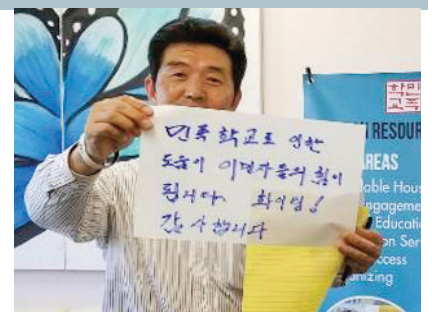 민족학교로 인한
도움이 이민자들의 힘이
됩니다. 화이팅!
감사합니다
학민
교족
RESOUR
AREAS
able Hous
ngageme
Educati
on Ser
ccess
anizing